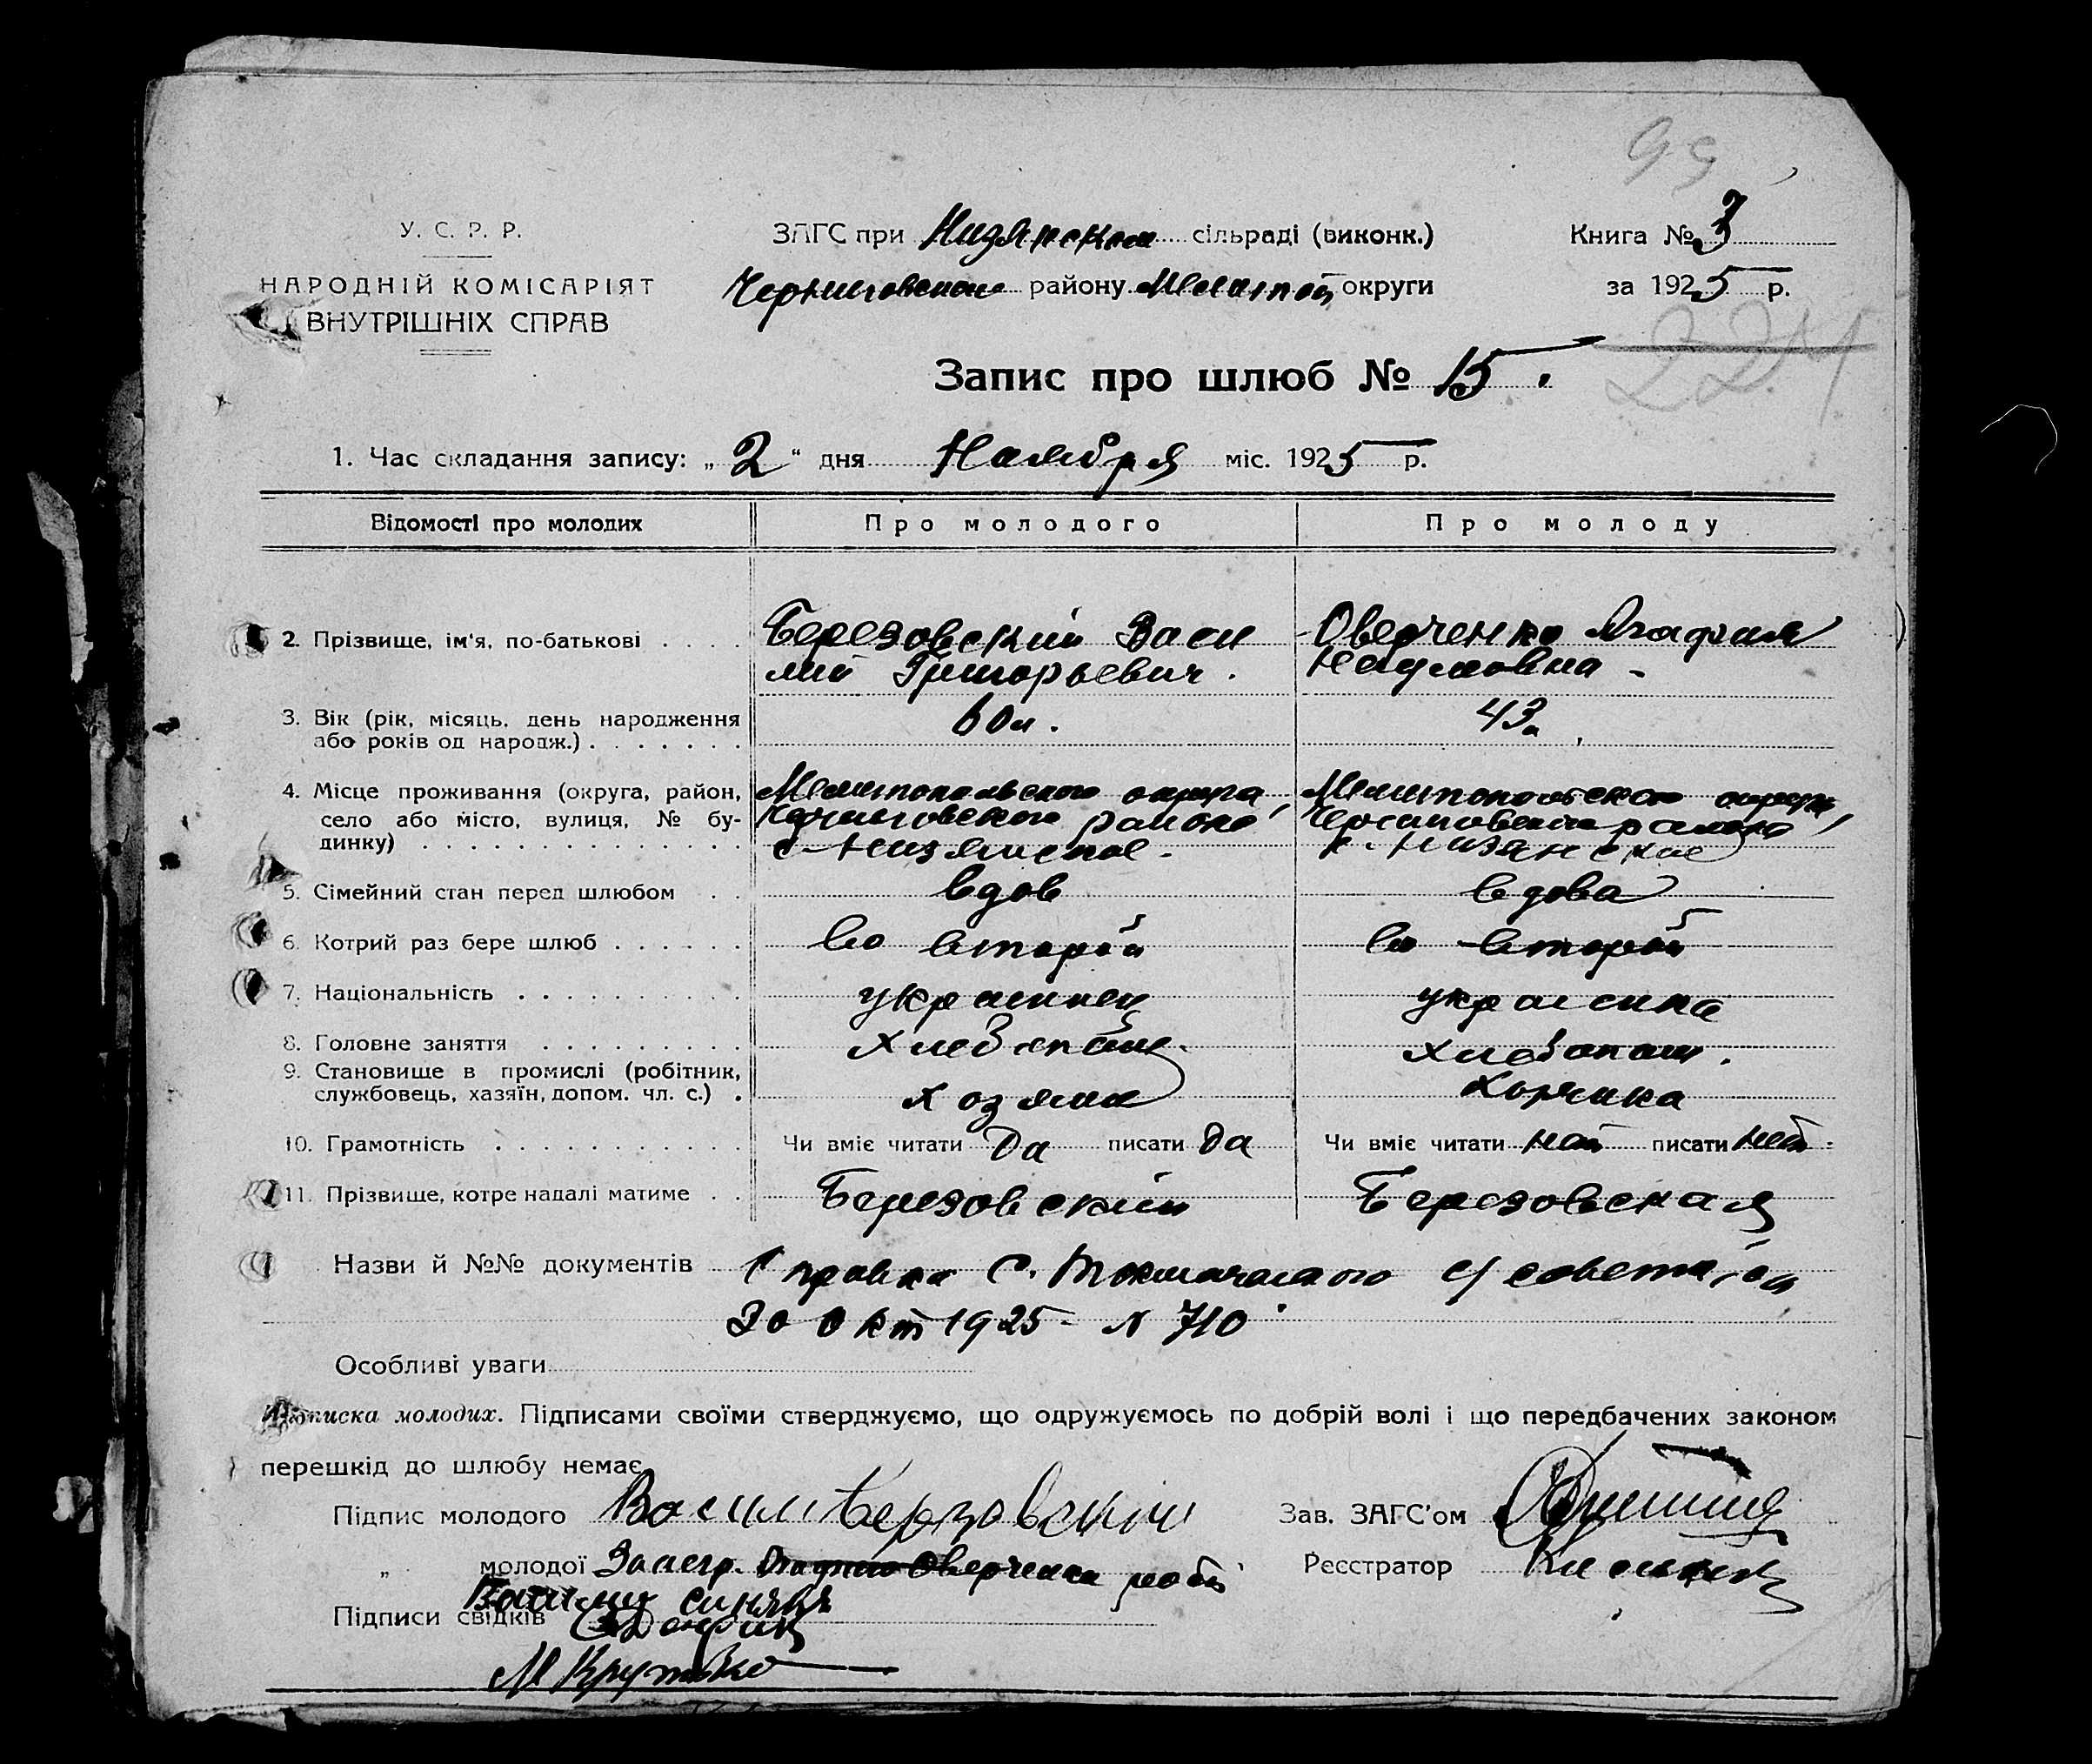 99
У. С. Р. Р.
НАРОДНІЙ КОМІСАРІЯТ
ВНУТРІШНІХ СПРАВ
ЗАГС при Низянском сільраді (виконк.)
Черниговского району Мелитоп округи
Книга № 3
за 1925 р.
224
Запис про шлюб № 15.
1. Час складання запису: „ 2 “ дня Ноября міс. 1925 р.
Відомості про молодих
Про молодого
Про молоду
2. Прізвище, ім'я, по-батькові . . . .
Березовский Васи
лий Григорьевич.
Оверченко Агафия
Наумовна -
3. Вік (рік, місяць, день народження
або років од народж.) . . . . . . .
60 л.
43 л.
4. Місце проживання (округа, район,
село або місто, вулиця, № бу-
динку) . . . . . . . . . . . . . .
Мелитопольского округа,
Черниговского района
с. Низянское.
Мелитопольского округа,
Черниговского района
с. Низянское
5. Сімейний стан перед шлюбом . .
вдов
вдова
6. Котрий раз бере шлюб . . . . . .
во второй
во второй
7. Національність . . . . . . . . . .
украинец
украинка
8. Головне заняття . . . . . . . . .
хлебопаш.
хлебопаш.
9. Становище в промислі (робітник,
службовець, хазяїн, допом. чл. с.) .
хозяин
10. Грамотність . . . . . . . . . . .
Чи вміє читати да писати да
Чи вміє читати нет писати нет
11. Прізвище, котре надалі матиме . .
Березовский
Березовская
Назви й №№ документів Справка с. Токмачанского с/совета от
30 Окт 1925 - N 710
Особливі уваги
Підписка молодих. Підписами своїми стверджуємо, що одружуємось по добрій волі і що передбачених законом
перешкід до шлюбу немає
Підпис молодого Васили Берзовский
Зав. ЗАГС'ом
„ молодої За негр. Оверченка
Реєстратор
Підписи свідків
М Крутько